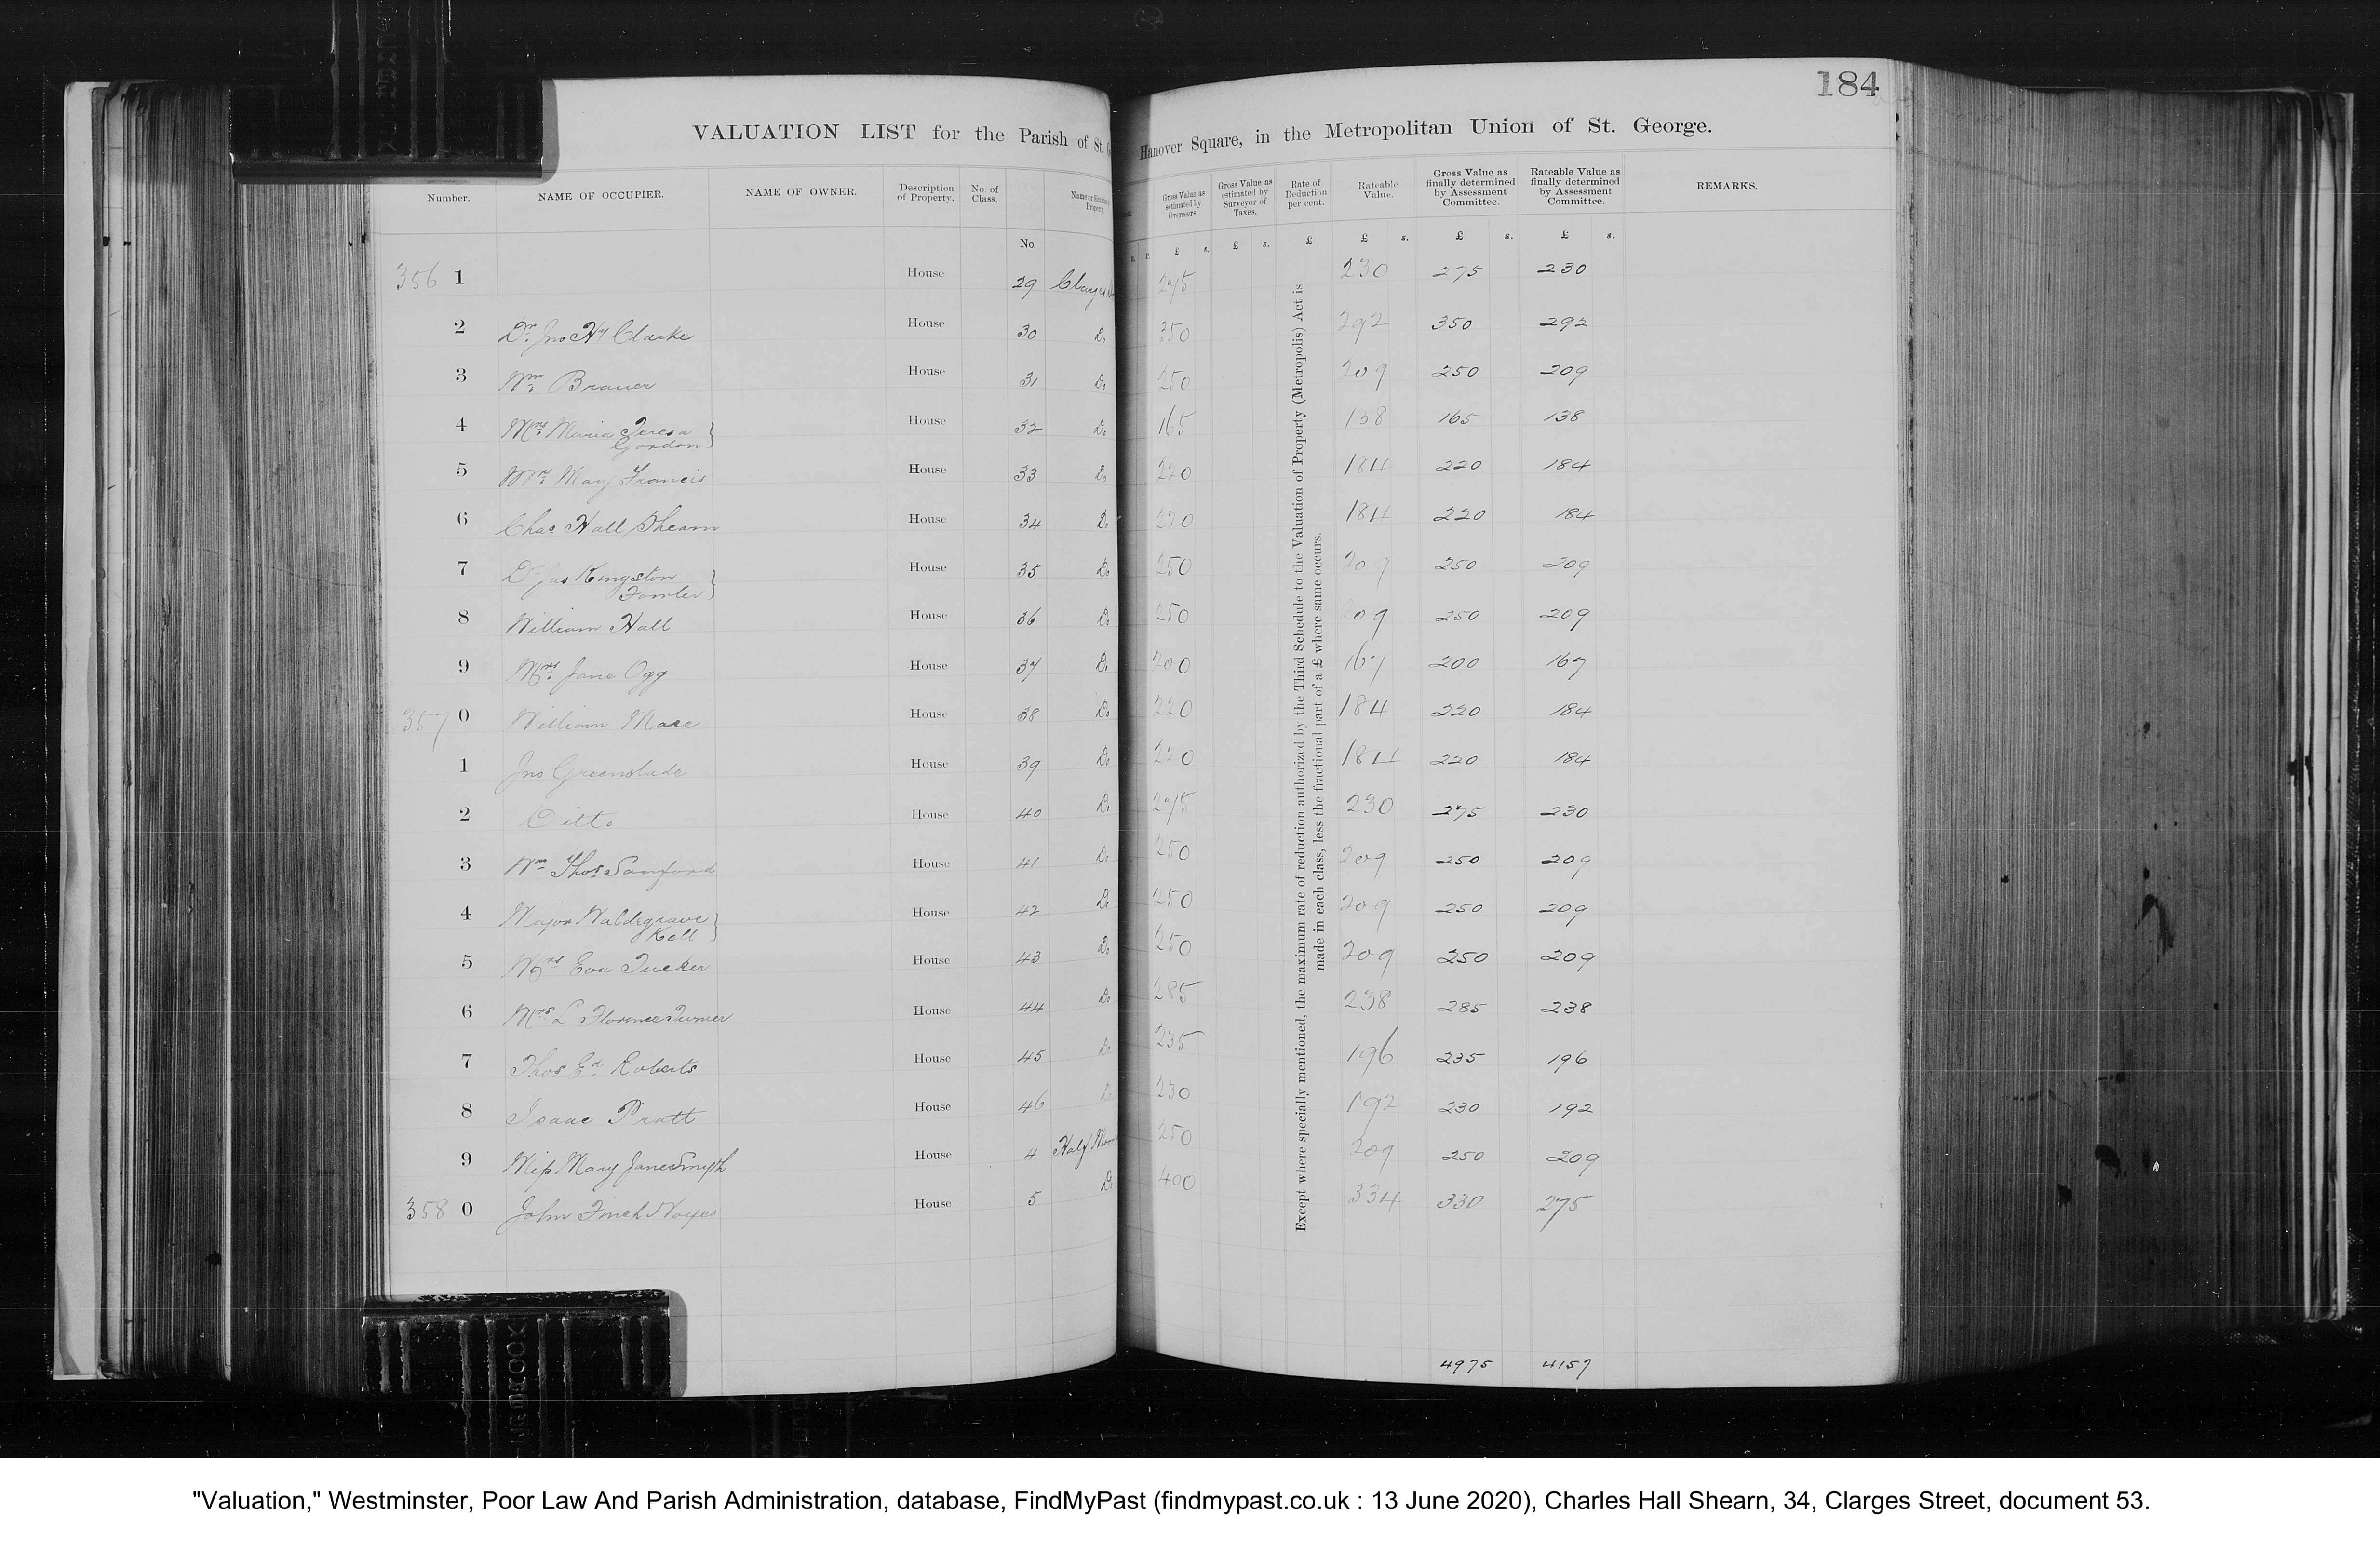 184
VALUATION LIST for the Parish of St. G Hanover Square, in the Metropolitan Union of St. George.
Number. NAME OF OCCUPIER. NAME OF OWNER. Description of Property. No. of Class. Name or Situation Property Gross Value as estimated by Overseers. Gross Value as estimated by Surveyor of Taxes. Rate of Deduction per cent. Rateable Value. Gross Value as finally determined by Assessment Committee. Rateable Value as finally determined by Assessment Committee. REMARKS.
No. £ s. £ s. £ £ s. £ s. £ s.
356 1 House 29 Clarges 275 230 275 230
2 Dr. Jno Hy Clarke House 30 Do 350 292 350 292
3 Wm. Brauer House 31 Do 250 209 250 209
4 Mrs. Maria Teresa Gordon } House 32 Do 165 138 165 138
5 Mrs. Mary Francis House 33 Do 220 184 220 184
6 Chas Hall Shearn House 34 Do 220 184 220 184
7 Dr Jas Kingston Fowler } House 35 Do 250 209 250 209
8 William Hall House 36 Do 250 209 250 209
9 Mrs. Jane Ogg House 37 Do 200 167 200 167
357 0 William Mace House 38 Do 220 184 220 184
1 Jno Greenslade House 39 Do 220 184 220 184
2 Ditto House 40 Do 275 230 275 230
3 Wm Thos. Sanford House 41 Do 250 209 250 209
4 Major Waldegrave Kell } House 42 Do 250 209 250 209
5 Mrs Eva Tucker House 43 Do 250 209 250 209
6 Mrs L Florence Turner House 44 Do 285 238 285 238
7 Thos Ed. Roberts House 45 Do 235 196 235 196
8 Isaac Pratt House 46 Do 230 192 230 192
9 Miss Mary Jane Smyth House 4 Half Moon 250 209 250 209
358 0 John Finch Noyes House 5 Do 400 334 330 275
Except where specially mentioned, the maximum rate of reduction authorized by the Third Schedule to the Valuation of Property (Metropolis) Act is
made in each class, less the fractional part of a £ where same occurs.
4975 4157
"Valuation," Westminster, Poor Law And Parish Administration, database, FindMyPast (findmypast.co.uk : 13 June 2020), Charles Hall Shearn, 34, Clarges Street, document 53.